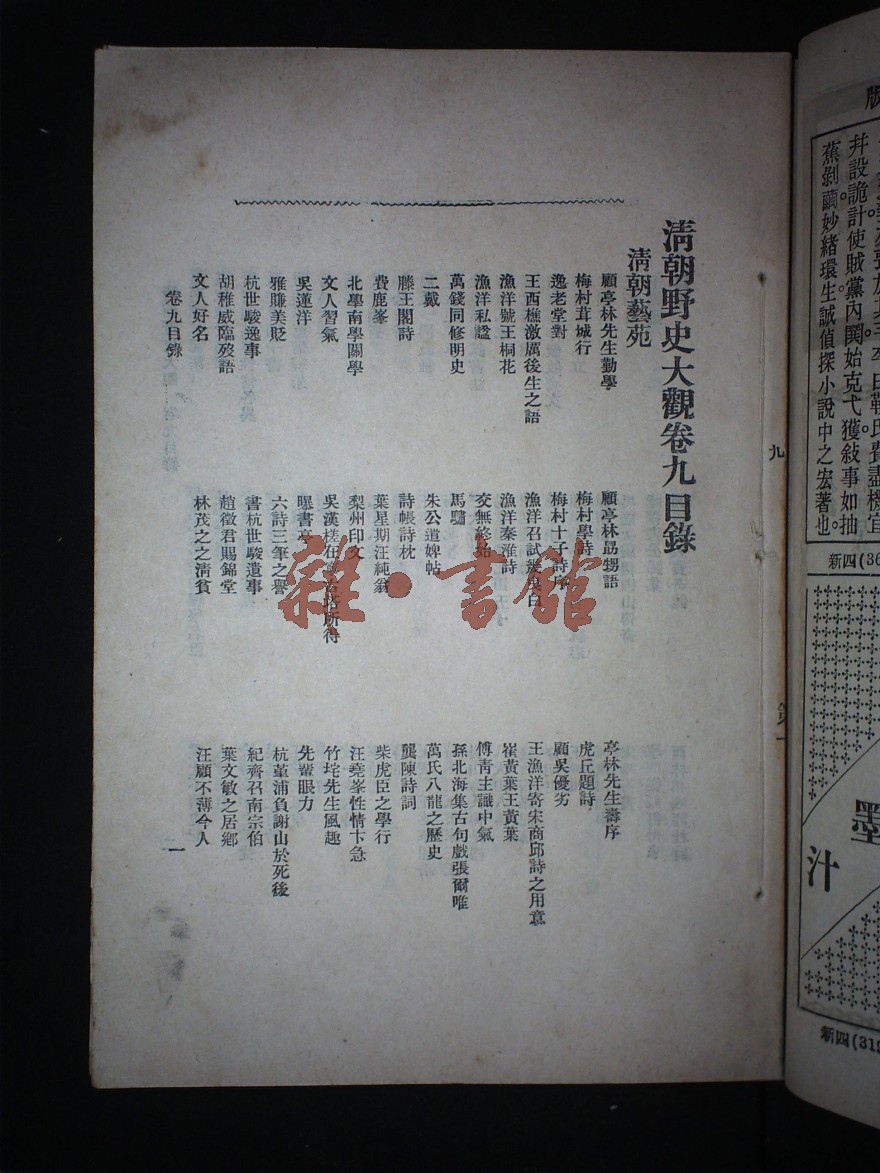 版
拜設詭計使賊黨內閧始克弋獲敍事如抽
蕉剝繭妙緒環生誠偵探小說中之宏著也
新四(36
墨
汁
新四(319
九
清朝野史大觀卷九目錄
清朝藝苑
顧亭林先生勤學
顧亭林勗甥語
亭林先生壽序
梅村茸城行
梅村學詩
虎丘題詩
逸老堂對
梅村十子詩序
顧吳優劣
王西樵激厲後生之語
漁洋召試幾曳白
王漁洋寄宋商邱詩之用意
漁洋號王桐花
漁洋秦淮詩
崔黃葉王黃葉
漁洋私諡
交無終始
傅青主識中氣
萬錢同修明史
馬驌
孫北海集古句戲張爾唯
二戴
朱公道婢帖
萬氏八龍之歷史
滕王閣詩
詩帳詩枕
龔陳詩詞
費鹿峯
葉星期汪純翁
柴虎臣之學行
北學南學關學
梨州印文
汪堯峯性情卞急
文人習氣
吳漢槎在寧古塔所得
竹垞先生風趣
吳蓮洋
曝書亭
先輩眼力
雅賺美貶
六詩三筆之譽
杭堇浦負謝山於死後
杭世駿逸事
書杭世駿遺事
紀齊召南宗伯
胡稚威臨歿語
趙徵君賜錦堂
葉文敏之居鄉
文人好名
林茂之之清貧
汪顧不薄今人
卷九目錄
一
雜·書館